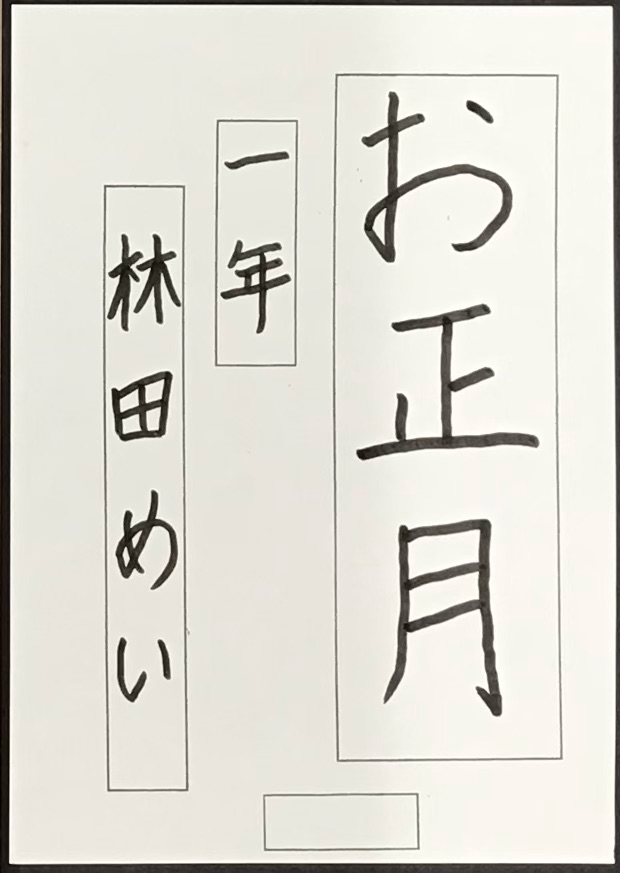 お正月
一年
林田めい